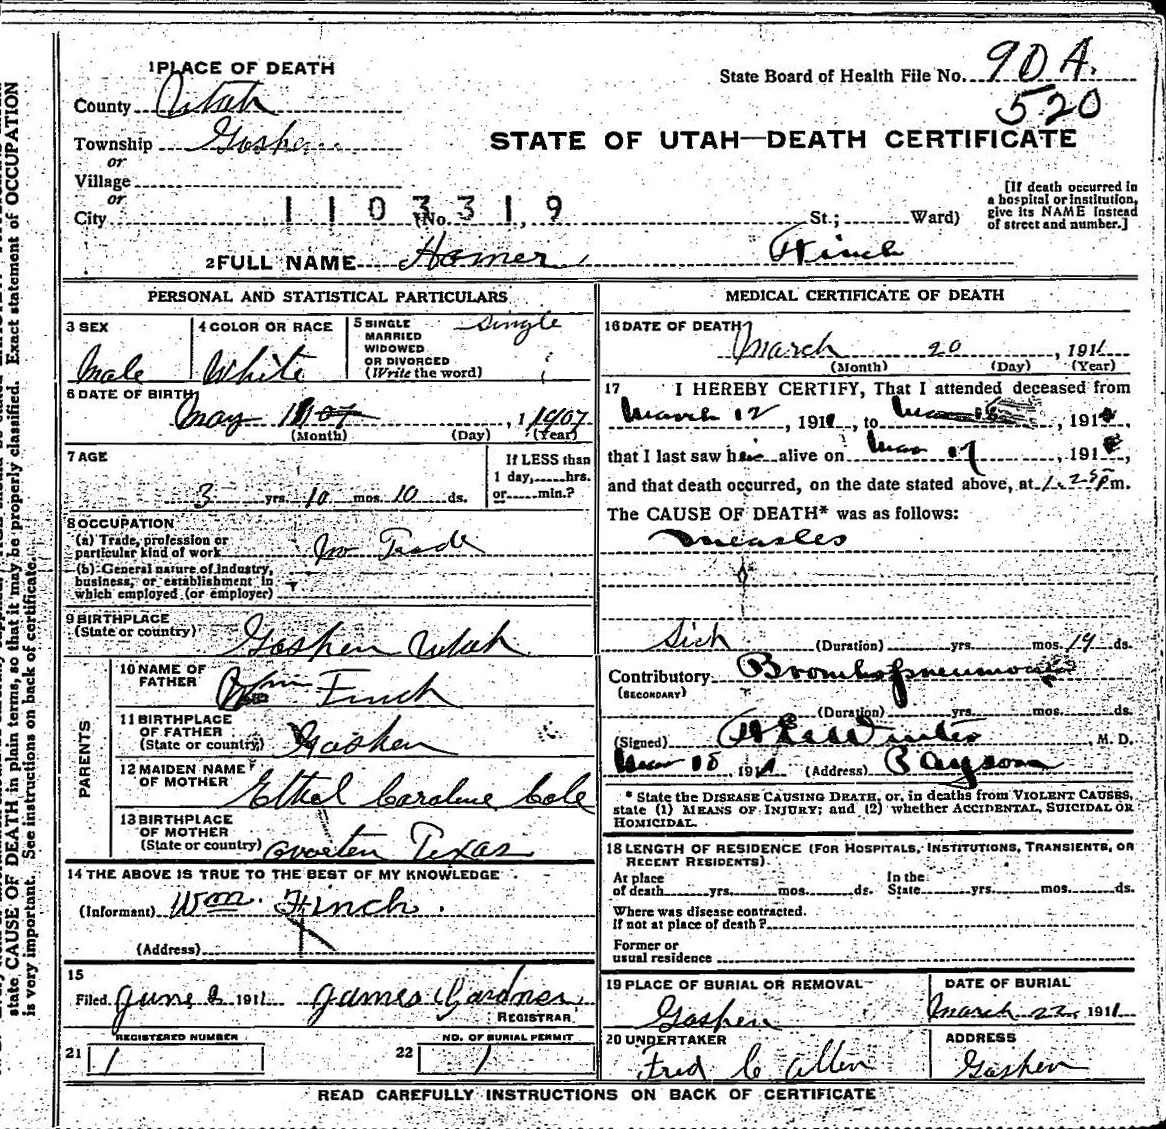 1 PLACE OF DEATH
State Board of Health File No. 90 A.
520
County Utah
Township Goshen
or
Village
or
City
STATE OF UTAH—DEATH CERTIFICATE
1103319
(No. St.; Ward)
[If death occurred in a hospital or institution, give its NAME instead of street and number.]
2 FULL NAME Homer Finch
PERSONAL AND STATISTICAL PARTICULARS
3 SEX
Male
4 COLOR OR RACE
White
5 SINGLE MARRIED WIDOWED OR DIVORCED (Write the word)
Single
6 DATE OF BIRTH
May 1907
(Month) (Day) (Year)
7 AGE
3 yrs. 10 mos. 10 ds.
If LESS than 1 day, hrs. or min.?
8 OCCUPATION
(a) Trade, profession or particular kind of work
No Trade
(b) General nature of industry, business, or establishment in which employed (or employer)
9 BIRTHPLACE
(State or country)
Goshen Utah
PARENTS
10 NAME OF FATHER
Wm Finch
11 BIRTHPLACE OF FATHER
(State or country)
Goshen
12 MAIDEN NAME OF MOTHER
Ethel Caroline Cole
13 BIRTHPLACE OF MOTHER
(State or country)
Texas
14 THE ABOVE IS TRUE TO THE BEST OF MY KNOWLEDGE
(Informant) Wm. Finch.
(Address)
15
Filed June 2 1911 James Gardner
REGISTRAR
REGISTERED NUMBER
21 1
NO. OF BURIAL PERMIT
22 1
MEDICAL CERTIFICATE OF DEATH
16 DATE OF DEATH
March 20, 1911
(Month) (Day) (Year)
17 I HEREBY CERTIFY, That I attended deceased from
March 12, 1911, to Mar, 191
that I last saw him alive on Mar 17, 191,
and that death occurred, on the date stated above, at m.
The CAUSE OF DEATH* was as follows:
Measles
Sick (Duration) yrs. mos. 19 ds.
Contributory Broncho pneumonia
(SECONDARY)
(Duration) yrs. mos. ds.
(Signed) Winter, M. D.
Mar 1911 (Address) Payson
* State the DISEASE CAUSING DEATH, or, in deaths from VIOLENT CAUSES, state (1) MEANS OF INJURY; and (2) whether ACCIDENTAL, SUICIDAL OR HOMICIDAL.
18 LENGTH OF RESIDENCE (FOR HOSPITALS, INSTITUTIONS, TRANSIENTS, OR RECENT RESIDENTS)
At place of death yrs. mos. ds. In the State yrs. mos. ds.
Where was disease contracted.
If not at place of death?
Former or usual residence
19 PLACE OF BURIAL OR REMOVAL
Goshen
DATE OF BURIAL
March 22 1911
20 UNDERTAKER
Fred C Allen
ADDRESS
Goshen
READ CAREFULLY INSTRUCTIONS ON BACK OF CERTIFICATE
state CAUSE OF DEATH in plain terms, so that it may be properly classified. Exact statement of OCCUPATION
is very important. See instructions on back of certificate.